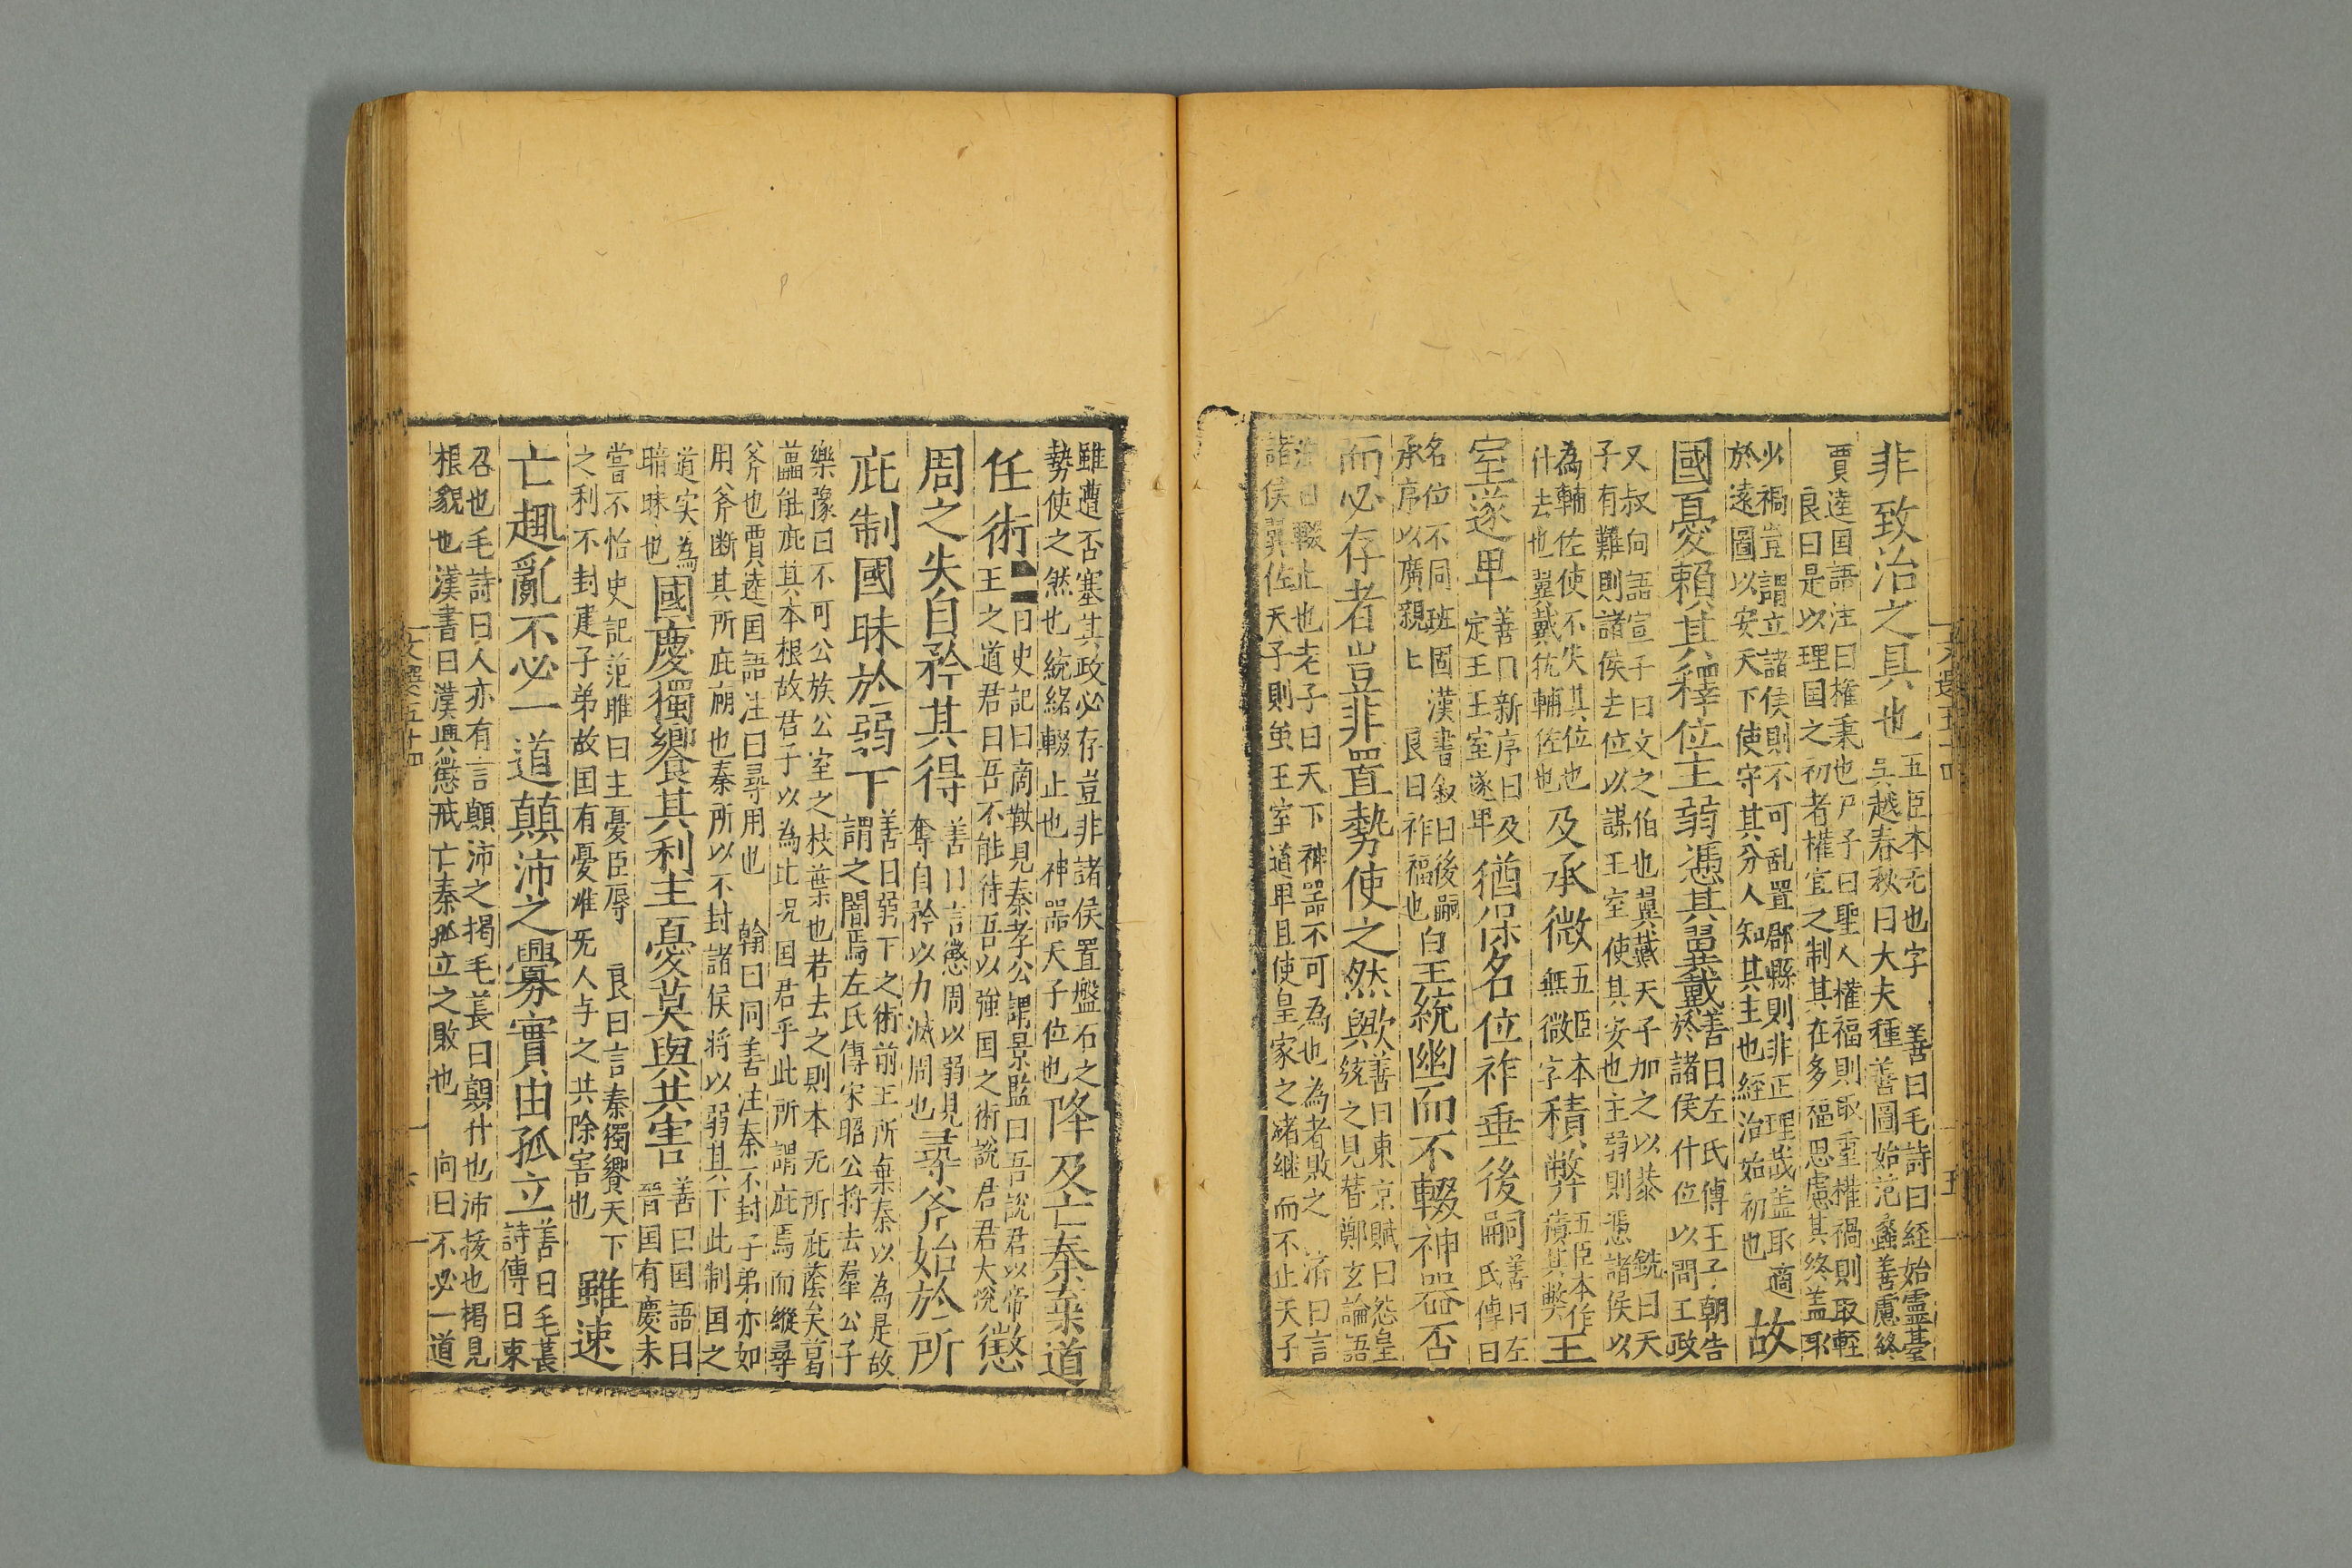 非致治之具也五臣本无也字　善曰毛詩曰経始霊臺
吳越春秋曰大夫種善圖始范蠡善慮終
賈逵国語注曰權秉也尸子曰聖人權福則取重權禍則取輕
良曰是以理国之初者權宜之制其在多福思慮其終盖取
少禍豈謂立諸侯則不可乱置郡縣則非正理㦲盖取適
於遠圖以安天下使守其分人知其主也経治始初也
故
國憂賴其釋位主弱憑其翼戴善曰左氏傳王子朝告
於諸侯什位以間王政
又叔向語宣子曰文之伯也翼戴天子加之以恭　銑曰天
子有難則諸侯去位以謀王室使其安也主弱則憑諸侯以
為輔佐使不失其位也
什去也翼戴犹輔佐也
及承微五臣本
無微字積弊五臣本作
積其弊王
室遂卑善曰新序曰及
定王王室遂卑猶保名位祚垂後嗣善曰左
氏傳曰
名位不同班固漢書叙曰後嗣
承序以廣親
良曰祚福也
皇統幽而不輟神器否
而必存者豈非置勢使之然歟善曰東京賦曰忩皇
統之見替鄭玄論語
注曰輟止也老子曰天下神器不可為也為者敗之　濟曰言
諸侯翼佐天子則虽王室道卑且使皇家之緒継而不止天子
雖遭否塞其政必存豈非諸侯置盤石之
勢使之然也統緒輟止也神器天子位也
降及亡秦棄道
任術曰史記曰商鞅見秦孝公謂景監曰吾說君以帝
王之道君曰吾不能待吾以強国之術說君君大悅
懲
周之失自矜其得善曰言懲周以弱見
奪自矜以力滅周也尋斧始於所
庇制國昧於弱下善曰弱下之術前王所棄秦以為是故
謂之闇焉左氏傳宋昭公将去羣公子
樂豫曰不可公族公室之枝葉也若去之則本无所庇蔭矣葛
藟能庇其本根故君子以為比况国君乎此所謂庇焉而縱尋
斧也賈逵国語注曰尋用也　翰曰同善注秦不封子弟亦如
用斧断其所庇廕也秦所以不封諸侯将以弱其下此制国之
道実為
暗昧也
國慶獨饗其利主憂莫與共害善曰国語曰
晉国有慶未
嘗不怡史記范睢曰主憂臣辱　良曰言秦獨饗天下
之利不封建子弟故国有憂难旡人与之共除害也
雖速
亡趨亂不必一道顛沛之釁實由孤立善曰毛萇
詩傳曰東
召也毛詩曰人亦有言顛沛之揭毛萇曰顛什也沛拔也揭見
根貌也漢書曰漢興懲戒亡秦孤立之敗也　向曰不必一道
文選五十四